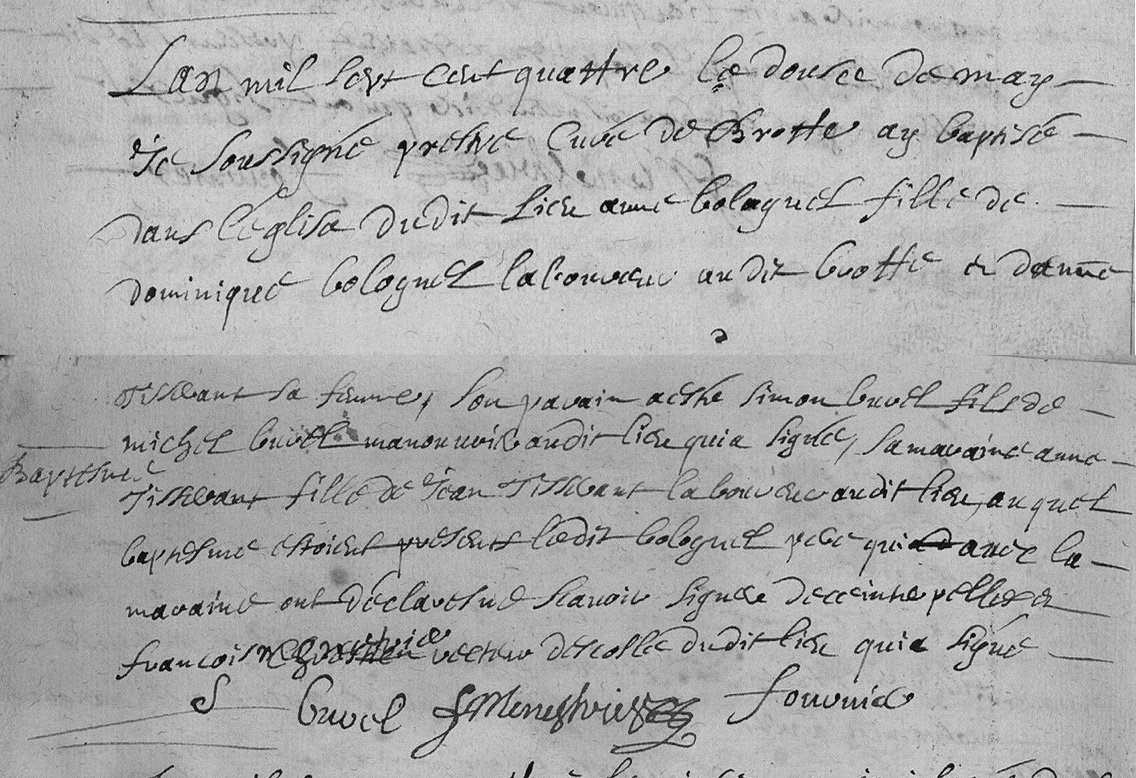 Lan mil sept cent quattre le douse de may
Je soussigné prêtre Curé de Brotte ay baptisé
dans l'eglise dudit Lieu anne bolognel fille de
dominique bolognel laboureur audit brotte et danne
Tisserant sa femme, son parain a esté simon buvel fils de
michel buvel manouvrie audit lieu qui a signé, sa maraine anne
Baptesme
Tisserant fille de Jean Tisserant laboureur audit lieu, auquel
baptesme estoient présents ledit bolognel pere qui avec la
maraine ont déclaré ne scavoir signer de ce
françois menestrie recteur descolle dudit lieu qui a signé
S buvel f Menestrie fournie